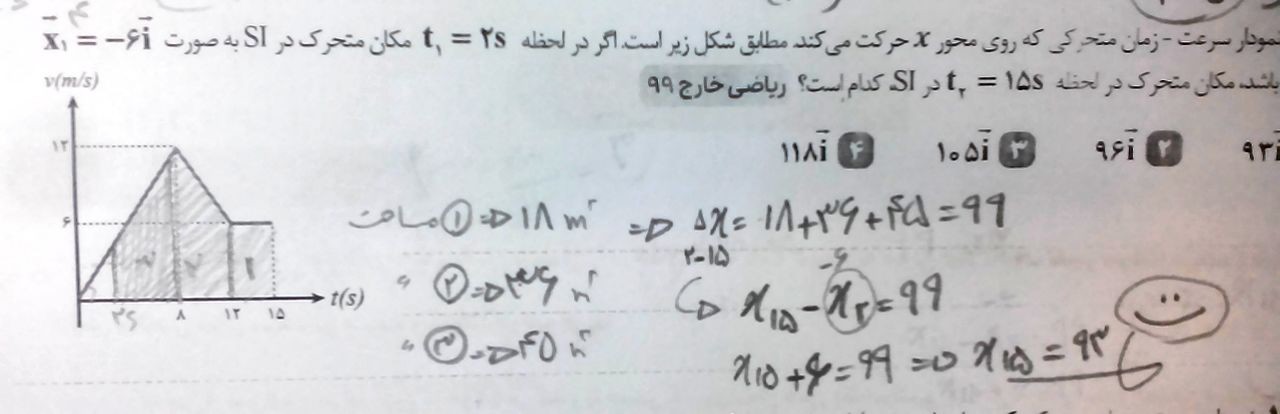 نمودار سرعت - زمان متحرکی که روی محور x حرکت می‌کند، مطابق شکل زیر است. اگر در لحظه t₁ = ۲s مکان متحرک در SI به صورت x⃗₁ = -۶i⃗
باشد، مکان متحرک در لحظه t₂ = ۱۵s در SI، کدام است؟ ریاضی خارج ۹۹
۹۳i⃗ ۲ ۹۶i⃗ ۳ ۱۰۵i⃗ ۴ ۱۱۸i⃗
v(m/s)
۱۲
۶
۳ ۲ ۱
t(s)
۲s ۸ ۱۲ ۱۵
مساحت ① => ۱۸ m² => Δx = ۱۸+۳۶+۴۵=۹۹
۲-۱۵
" ② => ۳۶ m²
-۶
x₁₅ - x₂ = ۹۹
" ③ => ۴۵ m²
x₁₅ + ۶ = ۹۹ => x₁₅ = ۹۳